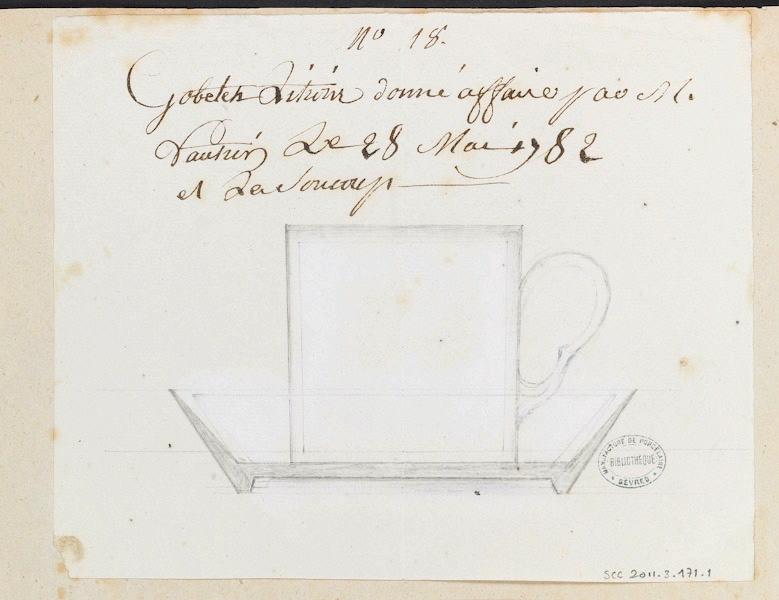 N.º 18.
Gobelet Litron donné affaire par M.
Le 28 Mai 1782
et La Soucoup
MANUFACTURE DE PORCELAINE
BIBLIOTHEQUE
SÈVRES
SCC 2011.3.171.1